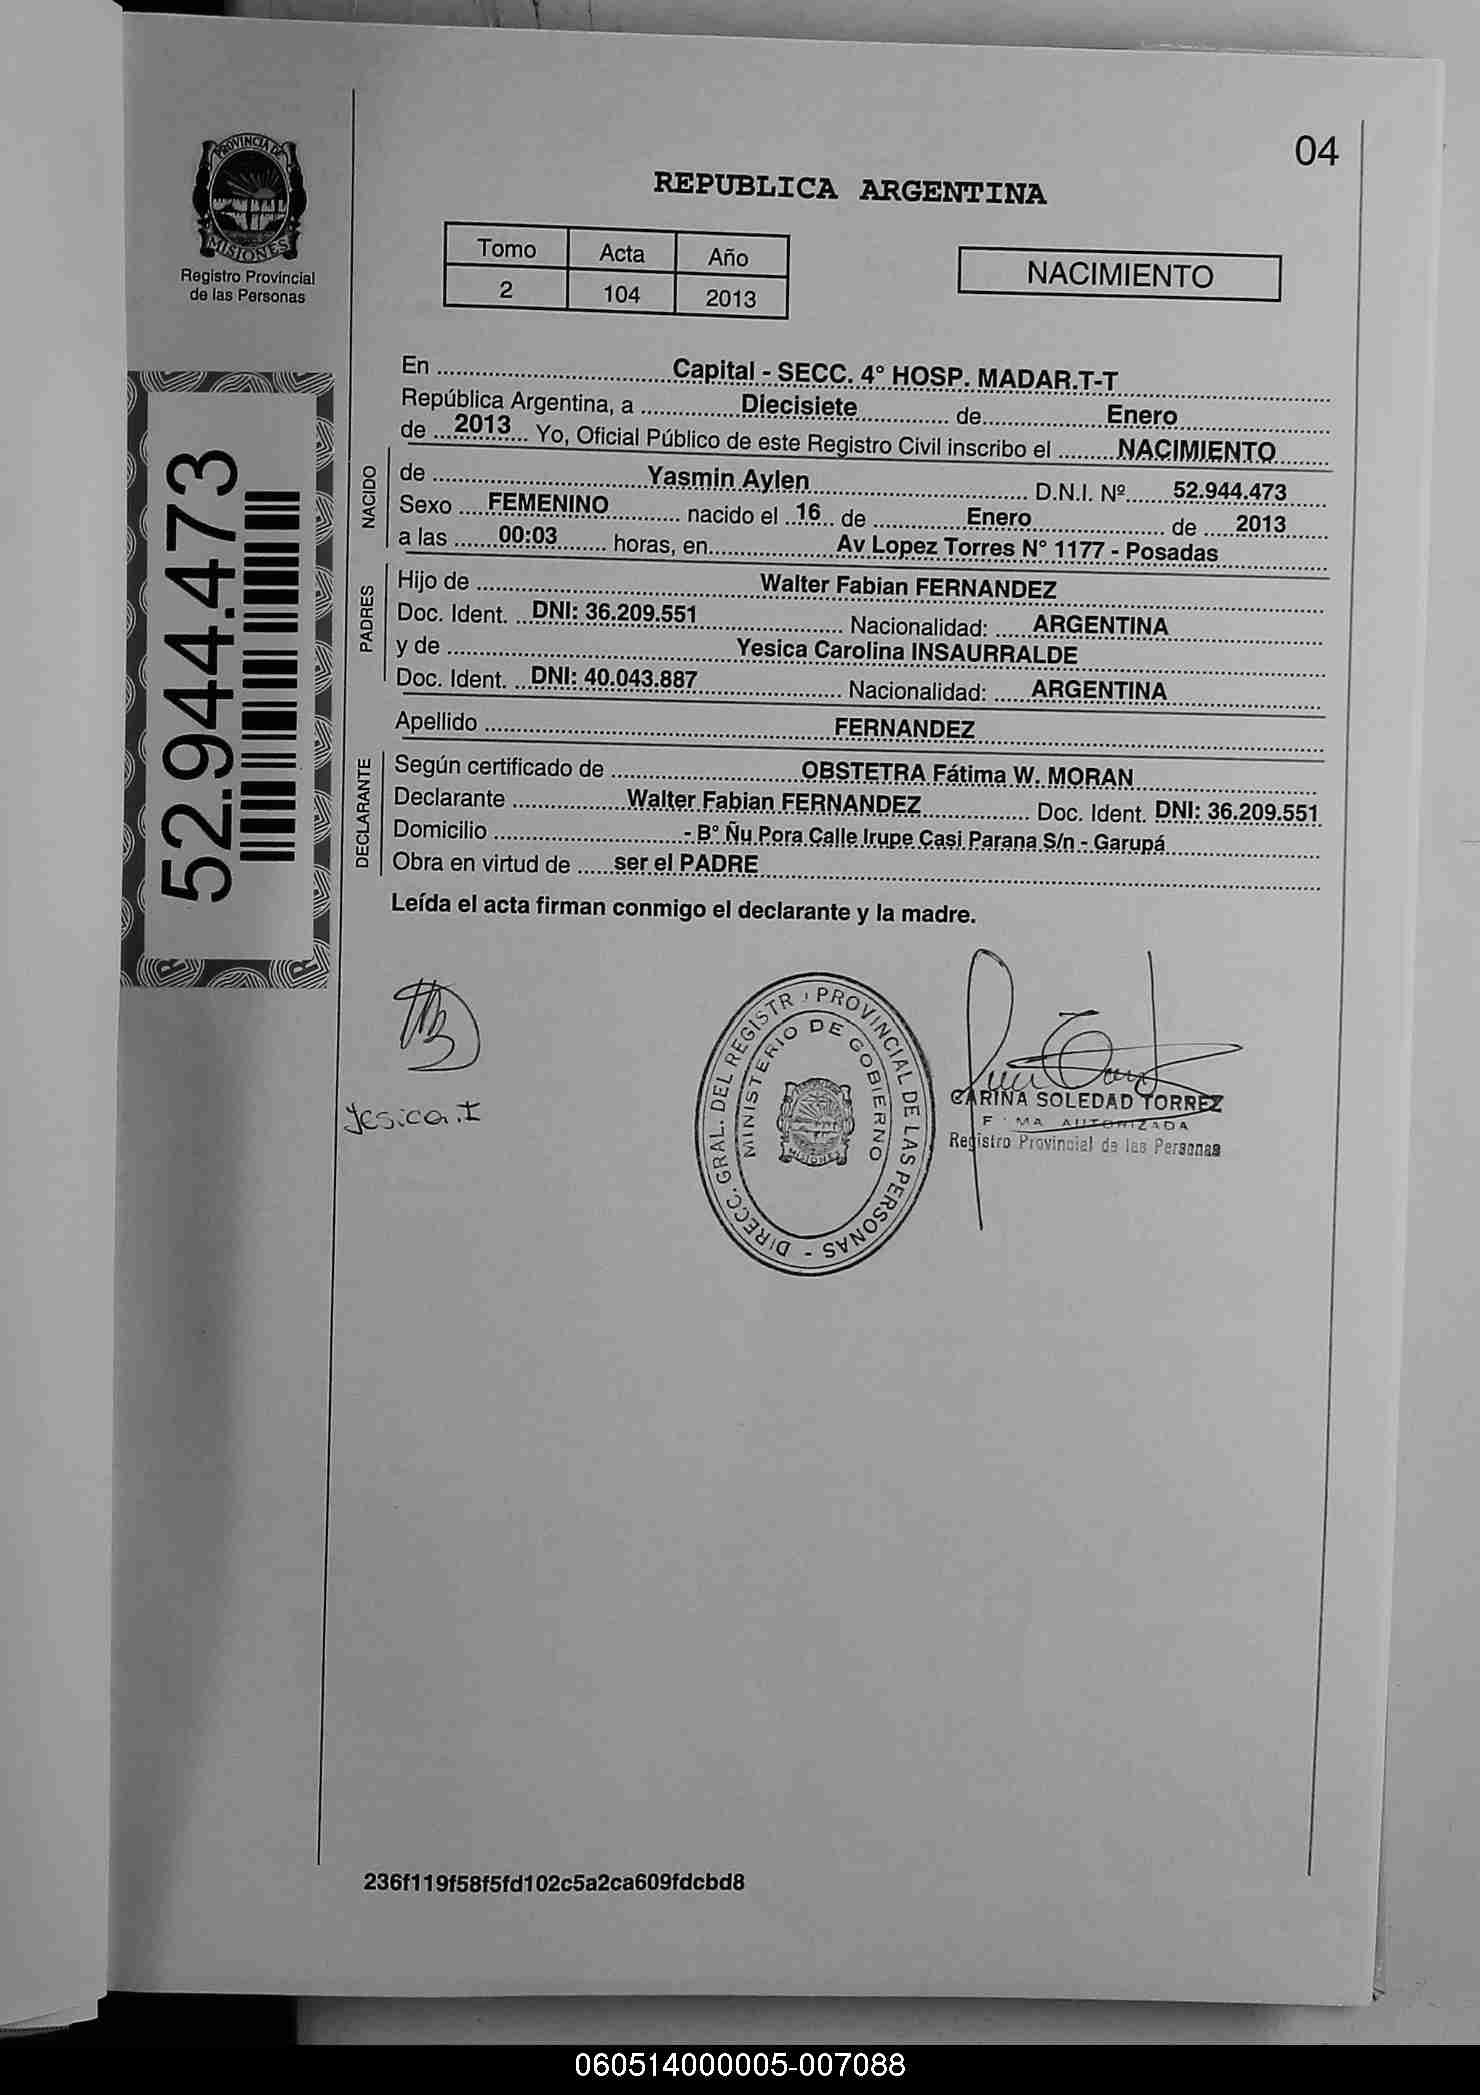 04
PROVINCIA DE
MISIONES
Registro Provincial
de las Personas
REPUBLICA ARGENTINA
Tomo Acta Año
2 104 2013
NACIMIENTO
52.944.473
En ........ Capital - SECC. 4° HOSP. MADAR.T-T
República Argentina, a ........ Diecisiete ........ de ........ Enero
de ... 2013 ... Yo, Oficial Público de este Registro Civil inscribo el ........ NACIMIENTO
NACIDO
de ........ Yasmin Aylen ........ D.N.I. Nº ....... 52.944.473
Sexo .... FEMENINO ........ nacido el .. 16 .. de ........ Enero ........ de .... 2013
a las ...... 00:03 ....... horas, en ........ Av Lopez Torres N° 1177 - Posadas
PADRES
Hijo de ........ Walter Fabian FERNANDEZ
Doc. Ident. ... DNI: 36.209.551 ........ Nacionalidad: ..... ARGENTINA
y de ........ Yesica Carolina INSAURRALDE
Doc. Ident. ... DNI: 40.043.887 ........ Nacionalidad: ..... ARGENTINA
Apellido ........ FERNANDEZ
DECLARANTE
Según certificado de ........ OBSTETRA Fátima W. MORAN
Declarante ........ Walter Fabian FERNANDEZ ........ Doc. Ident. DNI: 36.209.551
Domicilio ........ - B° Ñu Pora Calle Irupe Casi Parana S/n - Garupá
Obra en virtud de ...... ser el PADRE
Leída el acta firman conmigo el declarante y la madre.
Yesica.I
DIRECC. GRAL. DEL REGISTR PROVINCIAL DE LAS PERSONAS -
MINISTERIO DE GOBIERNO
MISIONES
CARINA SOLEDAD TORREZ
F MA AUTORIZADA
Registro Provincial de las Personas
236f119f58f5fd102c5a2ca609fdcbd8
060514000005-007088